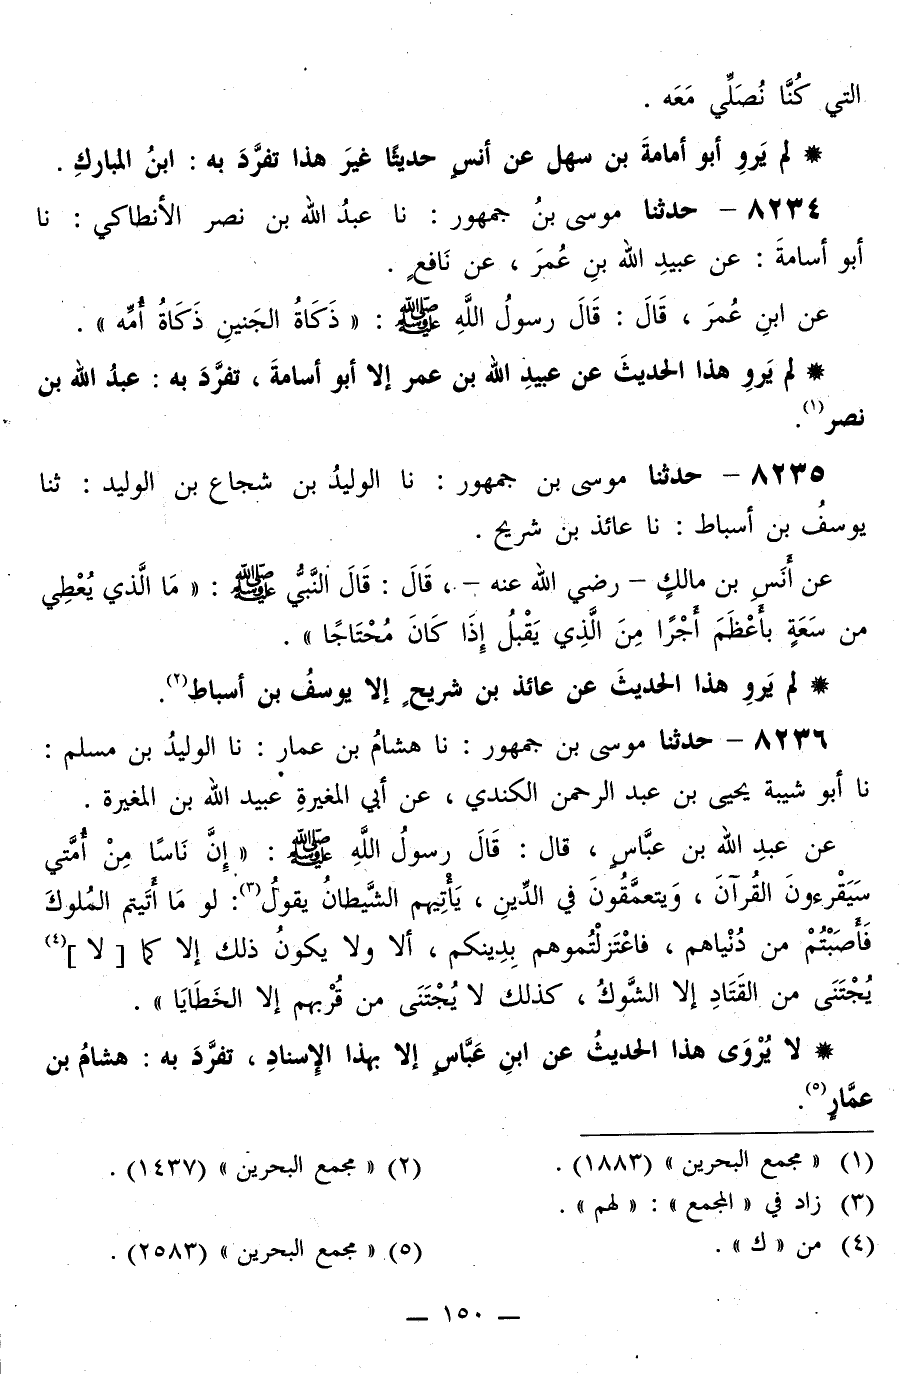 التي كُنَّا نُصَلِّي مَعَه .
* لم يَروِ أبو أمامةَ بن سهل عن أنسٍ حديثًا غيرَ هذا تفرَّدَ به : ابنُ المباركِ .
٨٢٣٤ – حدثنا موسى بنُ جمهور : نا عبدُ الله بن نصر الأنطاكي : نا
أبو أسامةَ : عن عبيدِ الله بنِ عُمرَ ، عن نَافعٍ .
عن ابنِ عُمرَ ، قَالَ : قَالَ رسولُ اللَّهِ ﷺ : « ذَكَاةُ الجَنينِ ذَكَاةُ أُمِّه » .
* لم يَروِ هذا الحديثَ عن عبيدِ الله بن عمر إلا أبو أسامةَ ، تفرَّدَ به : عبدُ الله بن
نصر(١).
٨٢٣٥ – حدثنا موسى بن جمهور : نا الوليدُ بن شجاع بن الوليد : ثنا
يوسفُ بن أسباط : نا عائذ بن شريح .
عن أَنَسِ بن مالكٍ – رضي الله عنه – ، قَالَ : قَالَ النَّبيُّ ﷺ : « مَا الَّذي يُعْطِي
من سَعَةٍ بأَعْظَمَ أَجْرًا مِنَ الَّذِي يَقْبلُ إِذَا كَانَ مُحْتَاجًا » .
* لم يَروِ هذا الحديثَ عن عائذ بن شريحٍ إلا يوسفُ بن أسباط(٢).
٨٢٣٦ – حدثنا موسى بن جمهور : نا هشامُ بن عمار : نا الوليدُ بن مسلم :
نا أبو شيبة يحيى بن عبد الرحمن الكندي ، عن أبي المغيرةِ عبيد الله بن المغيرة .
عن عبدِ الله بن عبَّاسٍ ، قال : قَالَ رسولُ اللَّهِ ﷺ : « إِنَّ نَاسًا مِنْ أُمَّتي
سَيَقْرءونَ القُرآنَ ، وَيتعمَّقُونَ في الدِّينِ ، يَأْتِيهم الشَّيطانُ يقولُ(٣): لو مَا أَتَيتم المُلوكَ
فَأَصَبْتُمْ من دُنْياهم ، فاعْتَزلْتُموهم بِدِينكم ، ألا ولا يكونُ ذلك إلا كما [ لا ](٤)
يُجْتَنَى من القَتَادِ إلا الشَّوكُ ، كذلك لا يُجْتَنَى من قُرْبهم إلا الخَطَايَا » .
* لا يُرْوَى هذا الحديثُ عن ابنِ عَبَّاسٍ إلا بهذا الإِسنادِ ، تفرَّدَ به : هشامُ بن
عمَّارٍ(٥).
(١) « مجمع البحرين » (١٨٨٣) .
(٢) « مجمع البحرين » (١٤٣٧) .
(٣) زاد في « المجمع » : « لهم » .
(٤) من « ك » .
(٥) « مجمع البحرين » (٢٥٨٣) .
— ١٥٠ —